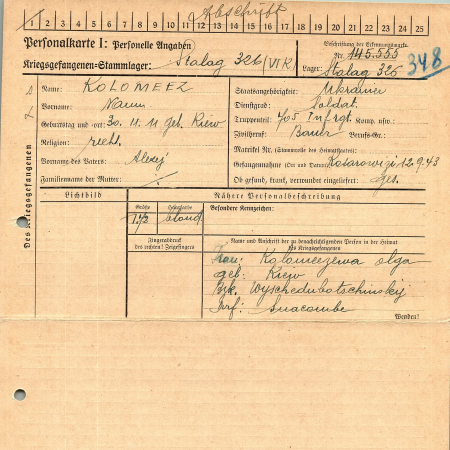 Abschrift
1 2 3 4 5 6 7 8 9 10 11 12 13 14 15 16 17 18 19 20 21 22 23 24 25
Personalkarte I: Personelle Angaben
Kriegsgefangenen-Stammlager: Stalag 326 (VI K)
Beschriftung der Erkennungsmarke
Nr. 145.555
Lager: Stalag 326
348
Des Kriegsgefangenen
Name: KOLOMEEZ
Vorname: Naum
Geburtstag und -ort: 30. 11. 11 geb. Kiew
Religion:
Vorname des Vaters: Alexej
Familienname der Mutter: ./.
Staatsangehörigkeit: Ukrainer
Dienstgrad: Soldat
Truppenteil: 405 Inf. rgt. Komp. usw.:
Zivilberuf: Bauer Berufs-Gr.:
Matrikel Nr. (Stammrolle des Heimatstaates):
Gefangennahme (Ort und Datum): 12.9.43
Ob gesund, krank, verwundet eingeliefert: ges.
Lichtbild
Nähere Personalbeschreibung
Größe
Haarfarbe
Besondere Kennzeichen:
1.72
blond
Fingerabdruck
des rechten! Zeigefingers
Name und Anschrift der zu benachrichtigenden Person in der Heimat
des Kriegsgefangenen
Frau: Kolomeezewa Olga
geb: Kiew
Wyschedubotschinskij
Dorf:
Wenden!